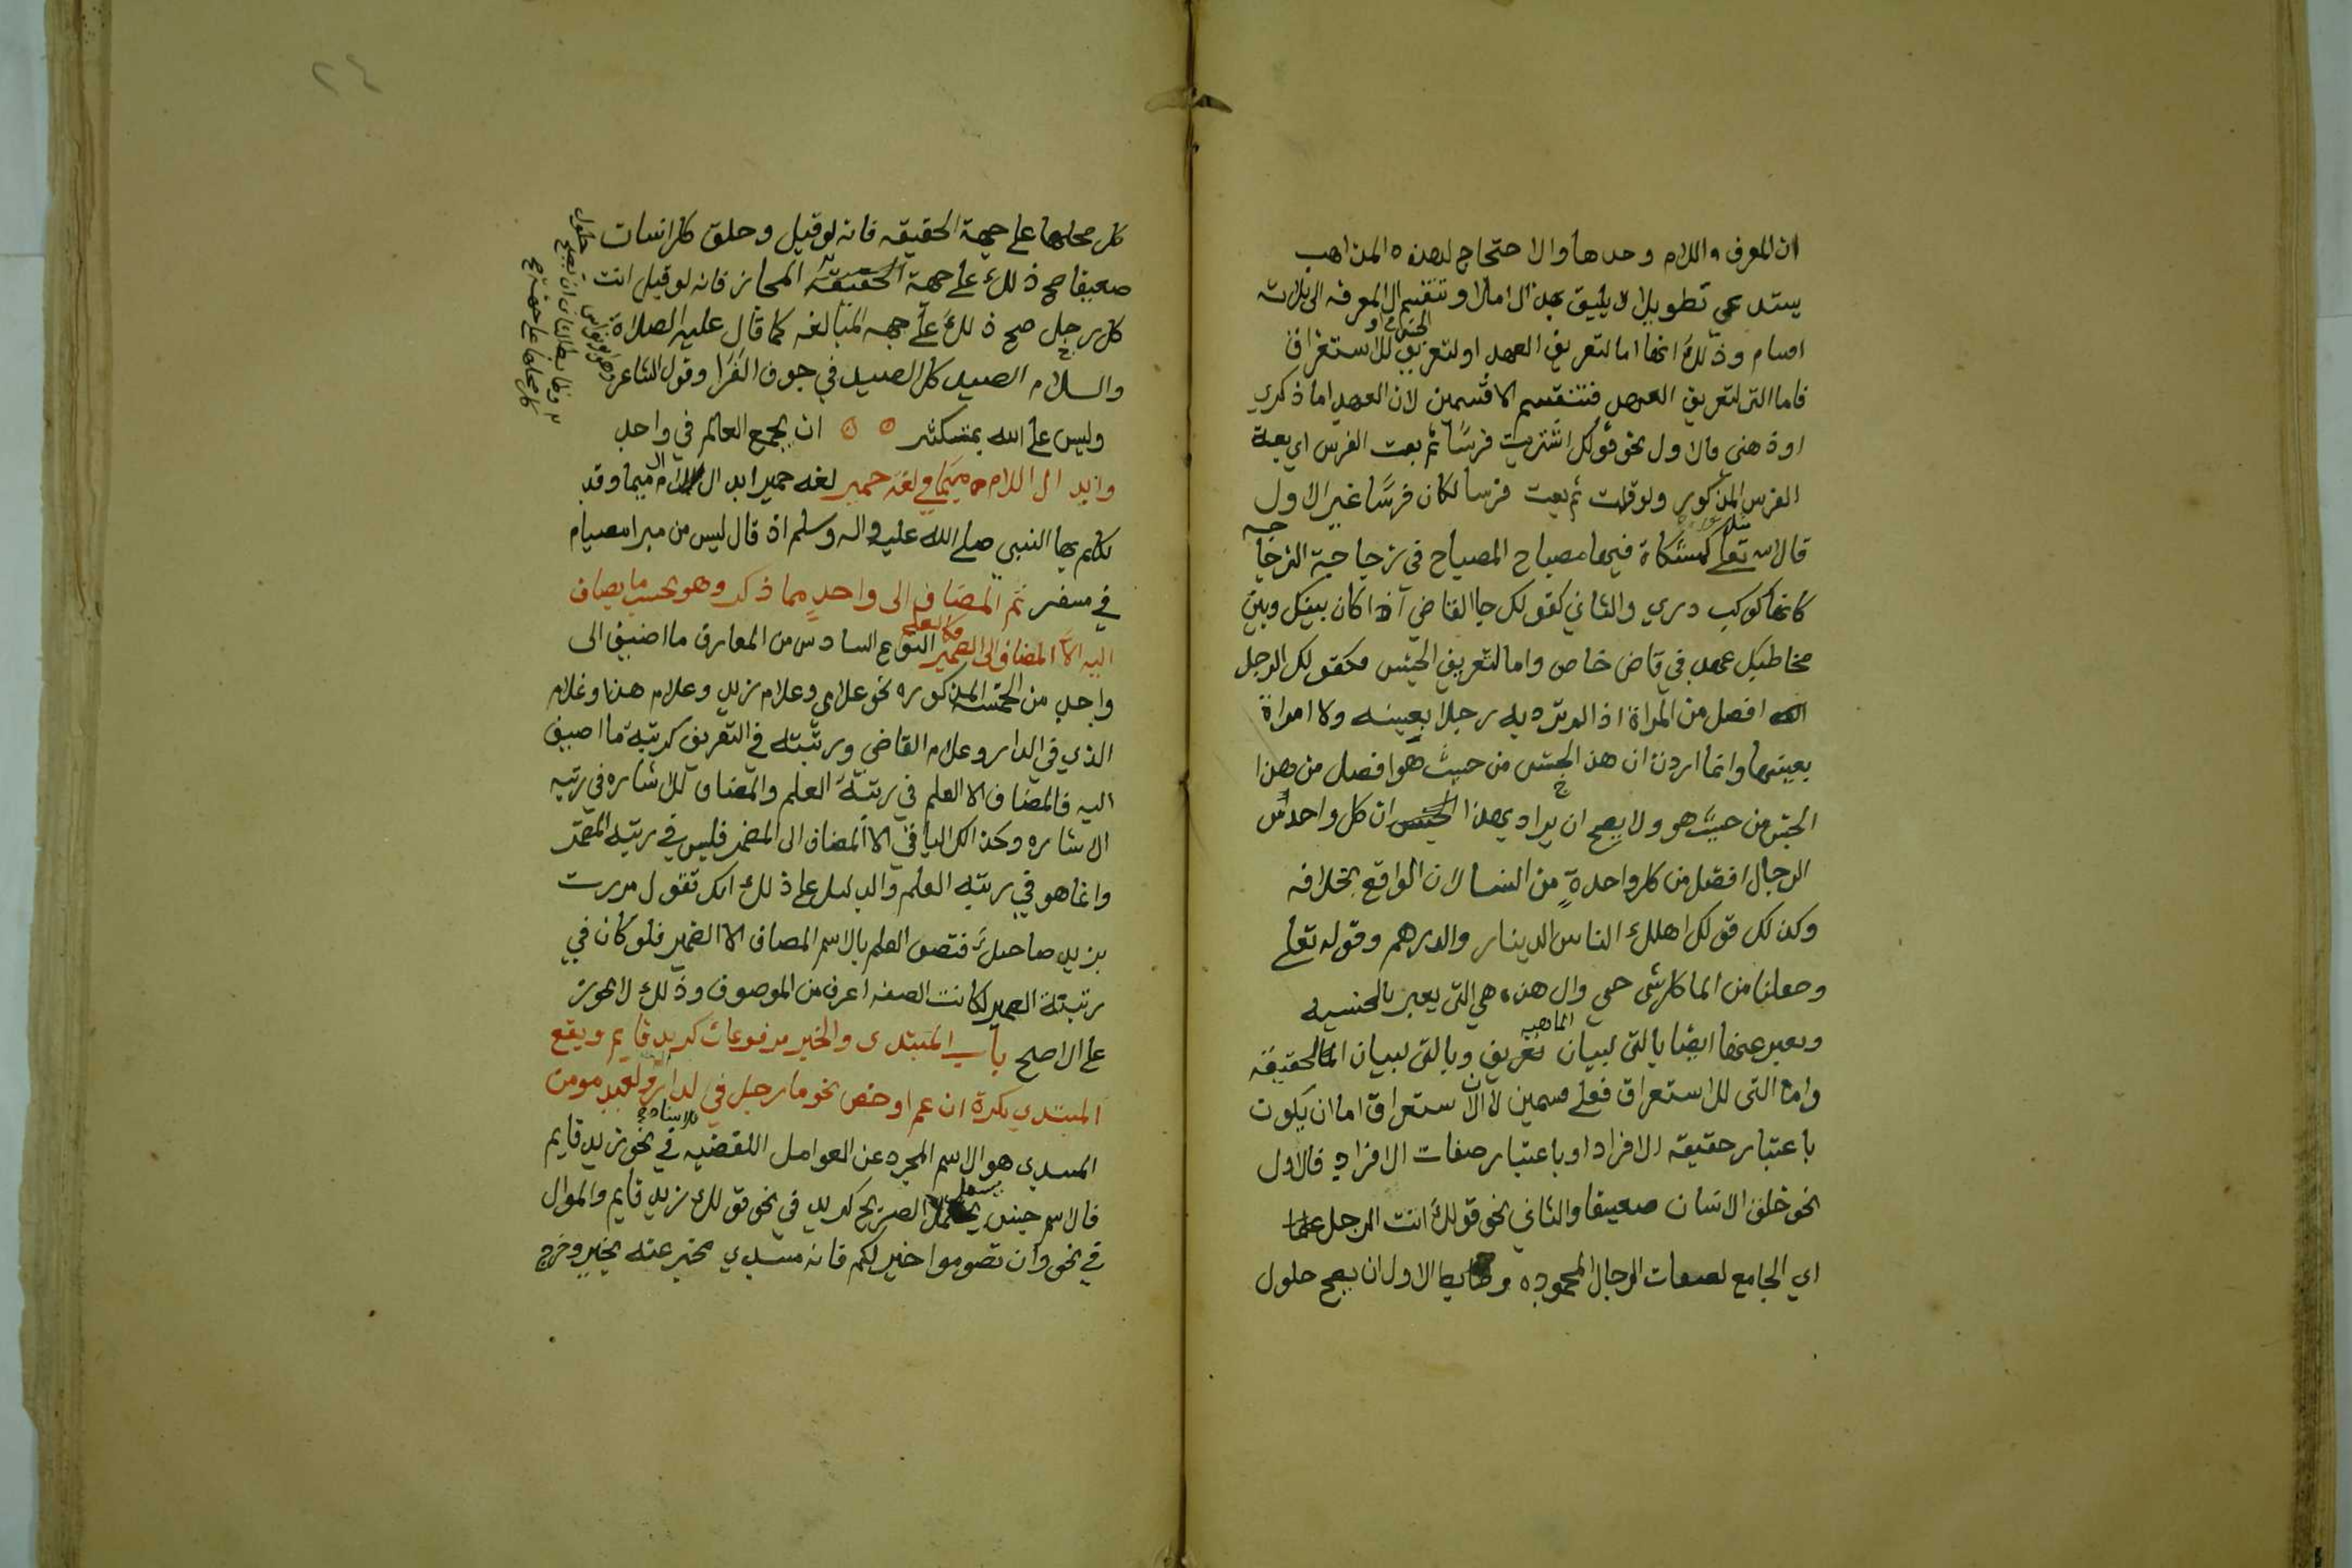 ان المعرف اللام وحدها والاحتجاج لهذه المذاهب
يستدعي تطويلا لا يليق بهذا الاملا وتنقسم ال المعرفه الى ثلاثه
اقسام وذلك انها اما لتعريف العهد او لتعريف الجنس او للاستغراق
فاما التي لتعريف العهد فتنقسم الا قسمين لان العهد اما ذكري
او ذهني فالاول نحو قولك اشتريت فرسًا ثم بعت الفرس اي بعت
الفرس المذكور ولو قلت ثم بعت فرسا لكان فرسًا غير الاول
قال الله تعلى كمشكاة فيها مصباح المصباح في زجاجة الزجاجه
كانها كوكب دري والثاني كقولك جا القاضي اذا كان بينك وبين
مخاطبك عهد في قاض خاص واما لتعريف الجنس فكقولك الرجل
افضل من المراة اذا لم ترد به رجلا بعينه ولا امراة
بعينها وانما اردت ان هذا الجنس من حيث هو افضل من هذا
الجنس من حيث هو ولا يصح ان يراد بهذا الجنس ان كل واحد من
الرجال افضل من كل واحدة من النسا لان الواقع بخلافه
وكذلك قولك اهلك الناس الدينار والدرهم وقوله تعلى
وجعلنا من الما كل شى حي وال هذه هي التي يعبر بالجنسيه
ويعبر عنها ايضا بالتي لبيان الماهيه وبالتي لبيان الحقيقه
واما التي للاستغراق فعلى قسمين لان الاستغراق اما ان يكون
باعتبار حقيقه الافراد او باعتبار صفات الافراد فالاول
نحو خلق الانسان ضعيفا والثاني نحو قولك انت الرجل علما
اي الجامع لصفات الرجال المحموده وضابط الاول ان يصح حلول
٢٤
كل محلها على جهة الحقيقه فانه لو قيل وخلق كل انسان
ضعيفا صح ذلك على جهة الحقيقه المجاز فانه لو قيل انت
كل رجل صح ذلك على جهه المبالغه كما قال عليه الصلاة
والسلام الصيد كل الصيد في جوف الفَرَا وقول الشاعر
وهو ابو نواس
وضابط الثاني ان يصح حلول
كل محلها على جهة
وليس على الله بمستنكر ان يجمع العالم في واحد
وابدال اللام ميمًا في لغة حمير لغه حمير ابدال لام ال ميما وقد
تكلم بها النبي صلى الله عليه واله وسلم اذ قال ليس من امبر امصيام
في سفر ثم المضاف الى واحدٍ مما ذكر وهو بحسب ما يضاف
اليه الا المضاف الى الضمير فكالعلم النوع السادس من المعارف ما اضيف الى
واحد من الخمسه المذكوره نحو غلامي وغلام زيد وغلام هذا وغلام
الذي في الدار وغلام القاضي ورتبته في التعريف كرتبة ما اضيف
اليه فالمضاف الا العلم في رتبة العلم والمضاف للاشاره في رتبه
الاشاره وكذالك الباقي الا المضاف الى المضمر فليس في رتبه المضمر
وانما هو في رتبه العلم والدليل على ذلك انك تقول مررت
بزيد صاحبك فتصف العلم بالاسم المضاف الا الضمير فلو كان في
رتبة الضمير لكانت الصفه اعرف من الموصوف وذلك لا يجوز
على الاصح باب المبتدى والخبر مرفوعان كزيد قايم ويقع
المبتدي نكرة ان عم او خص نحو ما رجل في الدار ولعبد مومن
المبتدي هو الاسم المجرد عن العوامل اللفظيه للاسناد في نحو زيد قايم
فالاسم جنس يشمل الصريح كزيد في نحو قولك زيد قايم والموال
في نحو وان تصوموا خير لكم فانه مبتدي مخبر عنه بخير وخرج